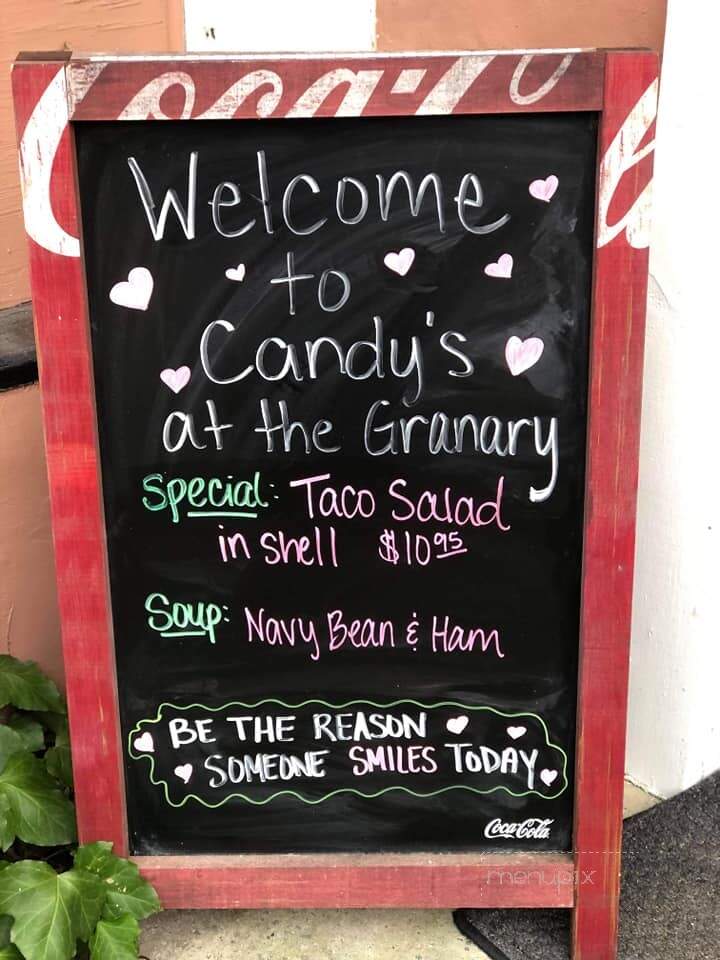 Coca-Co
Welcome
to
Candy's
at the Granary
Special: Taco Salad
in shell $10 95
Soup: Navy Bean & Ham
BE THE REASON
SOMEONE SMILES TODAY
Coca-Cola
menupix